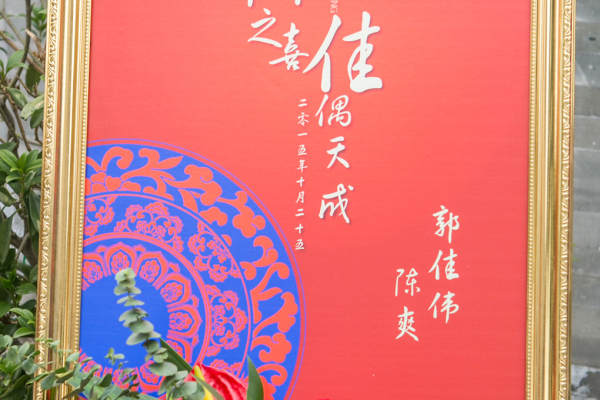 之喜
佳偶天成
二零一五年十月二十五
郭佳伟
陈爽